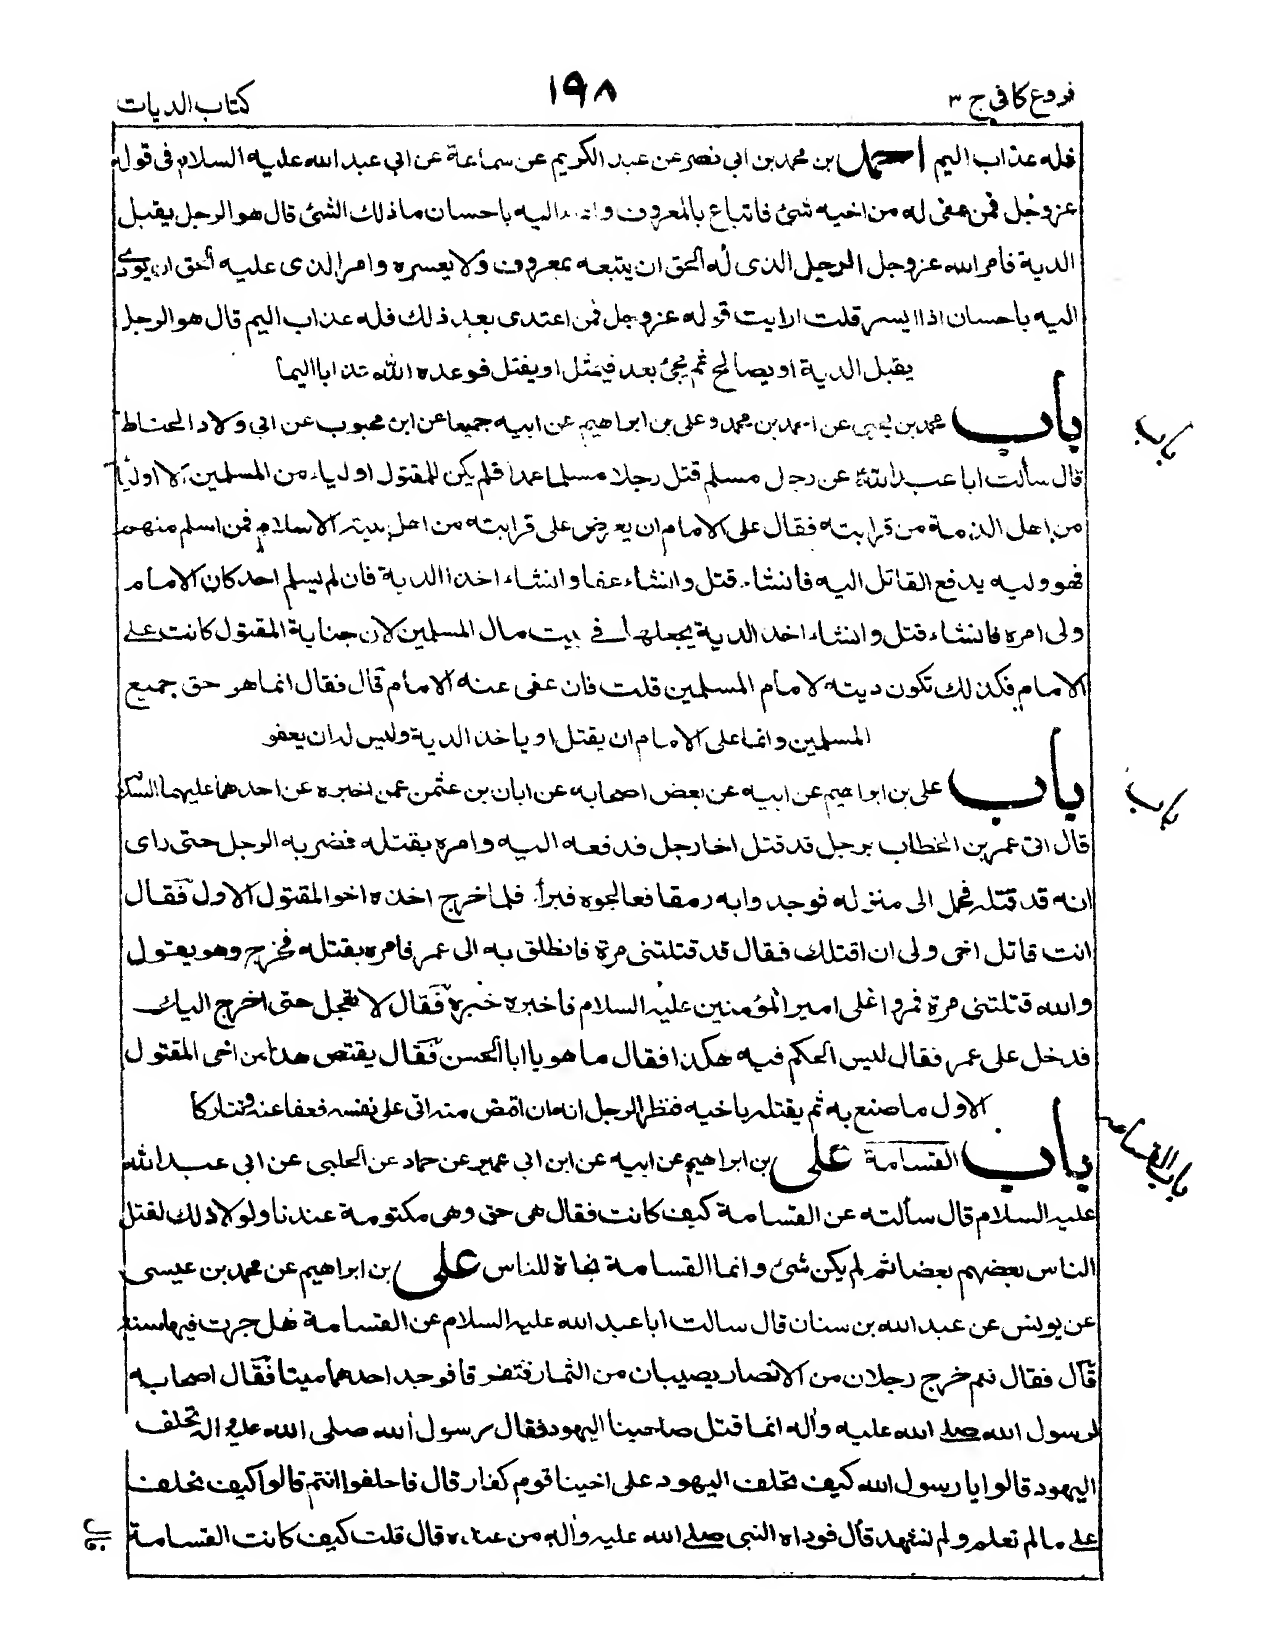 فروع كافي ج ٣
١٩٨
كتاب الديات
فله عذاب اليم احمد بن محمد بن ابى نصر عن عبد الكريم عن سماعة عن ابى عبد الله عليه السلام فى قوله
عز وجل فمن عفى له من اخيه شئ فاتباع بالمعروف واداء اليه باحسان ما ذلك الشئ قال هو الرجل يقبل
الدية فامر الله عز وجل الرجل الذى له الحق ان يتبعه بمعروف ولا يعسره وامر الذى عليه الحق ان يودى
اليه باحسان اذا ايسر قلت ارايت قوله عز وجل فمن اعتدى بعد ذلك فله عذاب اليم قال هو الرجل
يقبل الدية او يصالح ثم يجئ بعد فيمثل او يقتل فوعده الله عذابا اليما
باب محمد بن يحيى عن احمد بن محمد وعلى بن ابراهيم عن ابيه جميعا عن ابن محبوب عن ابى ولاد الحناط
باب
قال سألت ابا عبد الله عن رجل مسلم قتل رجلا مسلما عمدا فلم يكن للمقتول اولياء من المسلمين الا اوليآ
من اهل الذمة من قرابته فقال على الامام ان يعرض على قرابته من اهل بيته الاسلام فمن اسلم منهم
فهو وليه يدفع القاتل اليه فانشاء قتل وانشاء عفا وانشاء اخذ الدية فان لم يسلم احد كان الامام
ولى امره فانشاء قتل وانشاء اخذ الدية يجعلها فى بيت مال المسلمين لان جناية المقتول كانت على
الامام فكذلك تكون ديته لامام المسلمين قلت فان عفى عنه الامام قال فقال انما هو حق جميع
المسلمين وانما على الامام ان يقتل او ياخذ الدية وليس له ان يعفو
باب على بن ابراهيم عن ابيه عن بعض اصحابه عن ابان بن عثمن عمن اخبره عن احدهما عليهما السلم
باب
قال اتى عمر بن الخطاب برجل قد قتل اخا رجل فدفعه اليه وامره بقتله فضربه الرجل حتى راى
انه قد قتله فحمل الى منزله فوجدوا به رمقا فعالجوه فبرأ فلما خرج اخذه اخو المقتول الاول فقال
انت قاتل اخى ولى ان اقتلك فقال قد قتلتنى مرة فانطلق به الى عمر فامره بقتله فخرج وهو يقول
والله قتلتنى مرة فمروا على امير المؤمنين عليه السلام فاخبره خبره فقال لا تعجل حتى اخرج اليك
فدخل على عمر فقال ليس الحكم فيه هكذا فقال ما هو يا ابا الحسن فقال يقتص هذا من اخى المقتول
الاول ما صنع به ثم يقتله باخيه فنظر الرجل انه ان اقتص منه اتى على نفسه فعفا عنه وتتاركا
باب القسامة على بن ابراهيم عن ابيه عن ابن ابى عمير عن حماد عن الحلبى عن ابى عبد الله
باب القسامه
عليه السلام قال سألته عن القسامة كيف كانت فقال هى حق وهى مكتومة عندنا ولولا ذلك لقتل
الناس بعضهم بعضا ثم لم يكن شئ وانما القسامة نجاة للناس على بن ابراهيم عن محمد بن عيسى
عن يونس عن عبد الله بن سنان قال سالت ابا عبد الله عليه السلام عن القسامة هل جرت فيها سنة
قال فقال نعم خرج رجلان من الانصار يصيبان من الثمار فتفرقا فوجد احدهما ميتا فقال اصحابه
لرسول الله صلى الله عليه وآله انما قتل صاحبنا اليهود فقال رسول الله صلى الله عليه وآله تحلف
اليهود قالوا يا رسول الله كيف تحلف اليهود على اخينا قوم كفار قال فاحلفوا انتم قالوا كيف نحلف
على ما لم نعلم ولم نشهد قال فوداه النبى صلى الله عليه وآله من عنده قال قلت كيف كانت القسامة